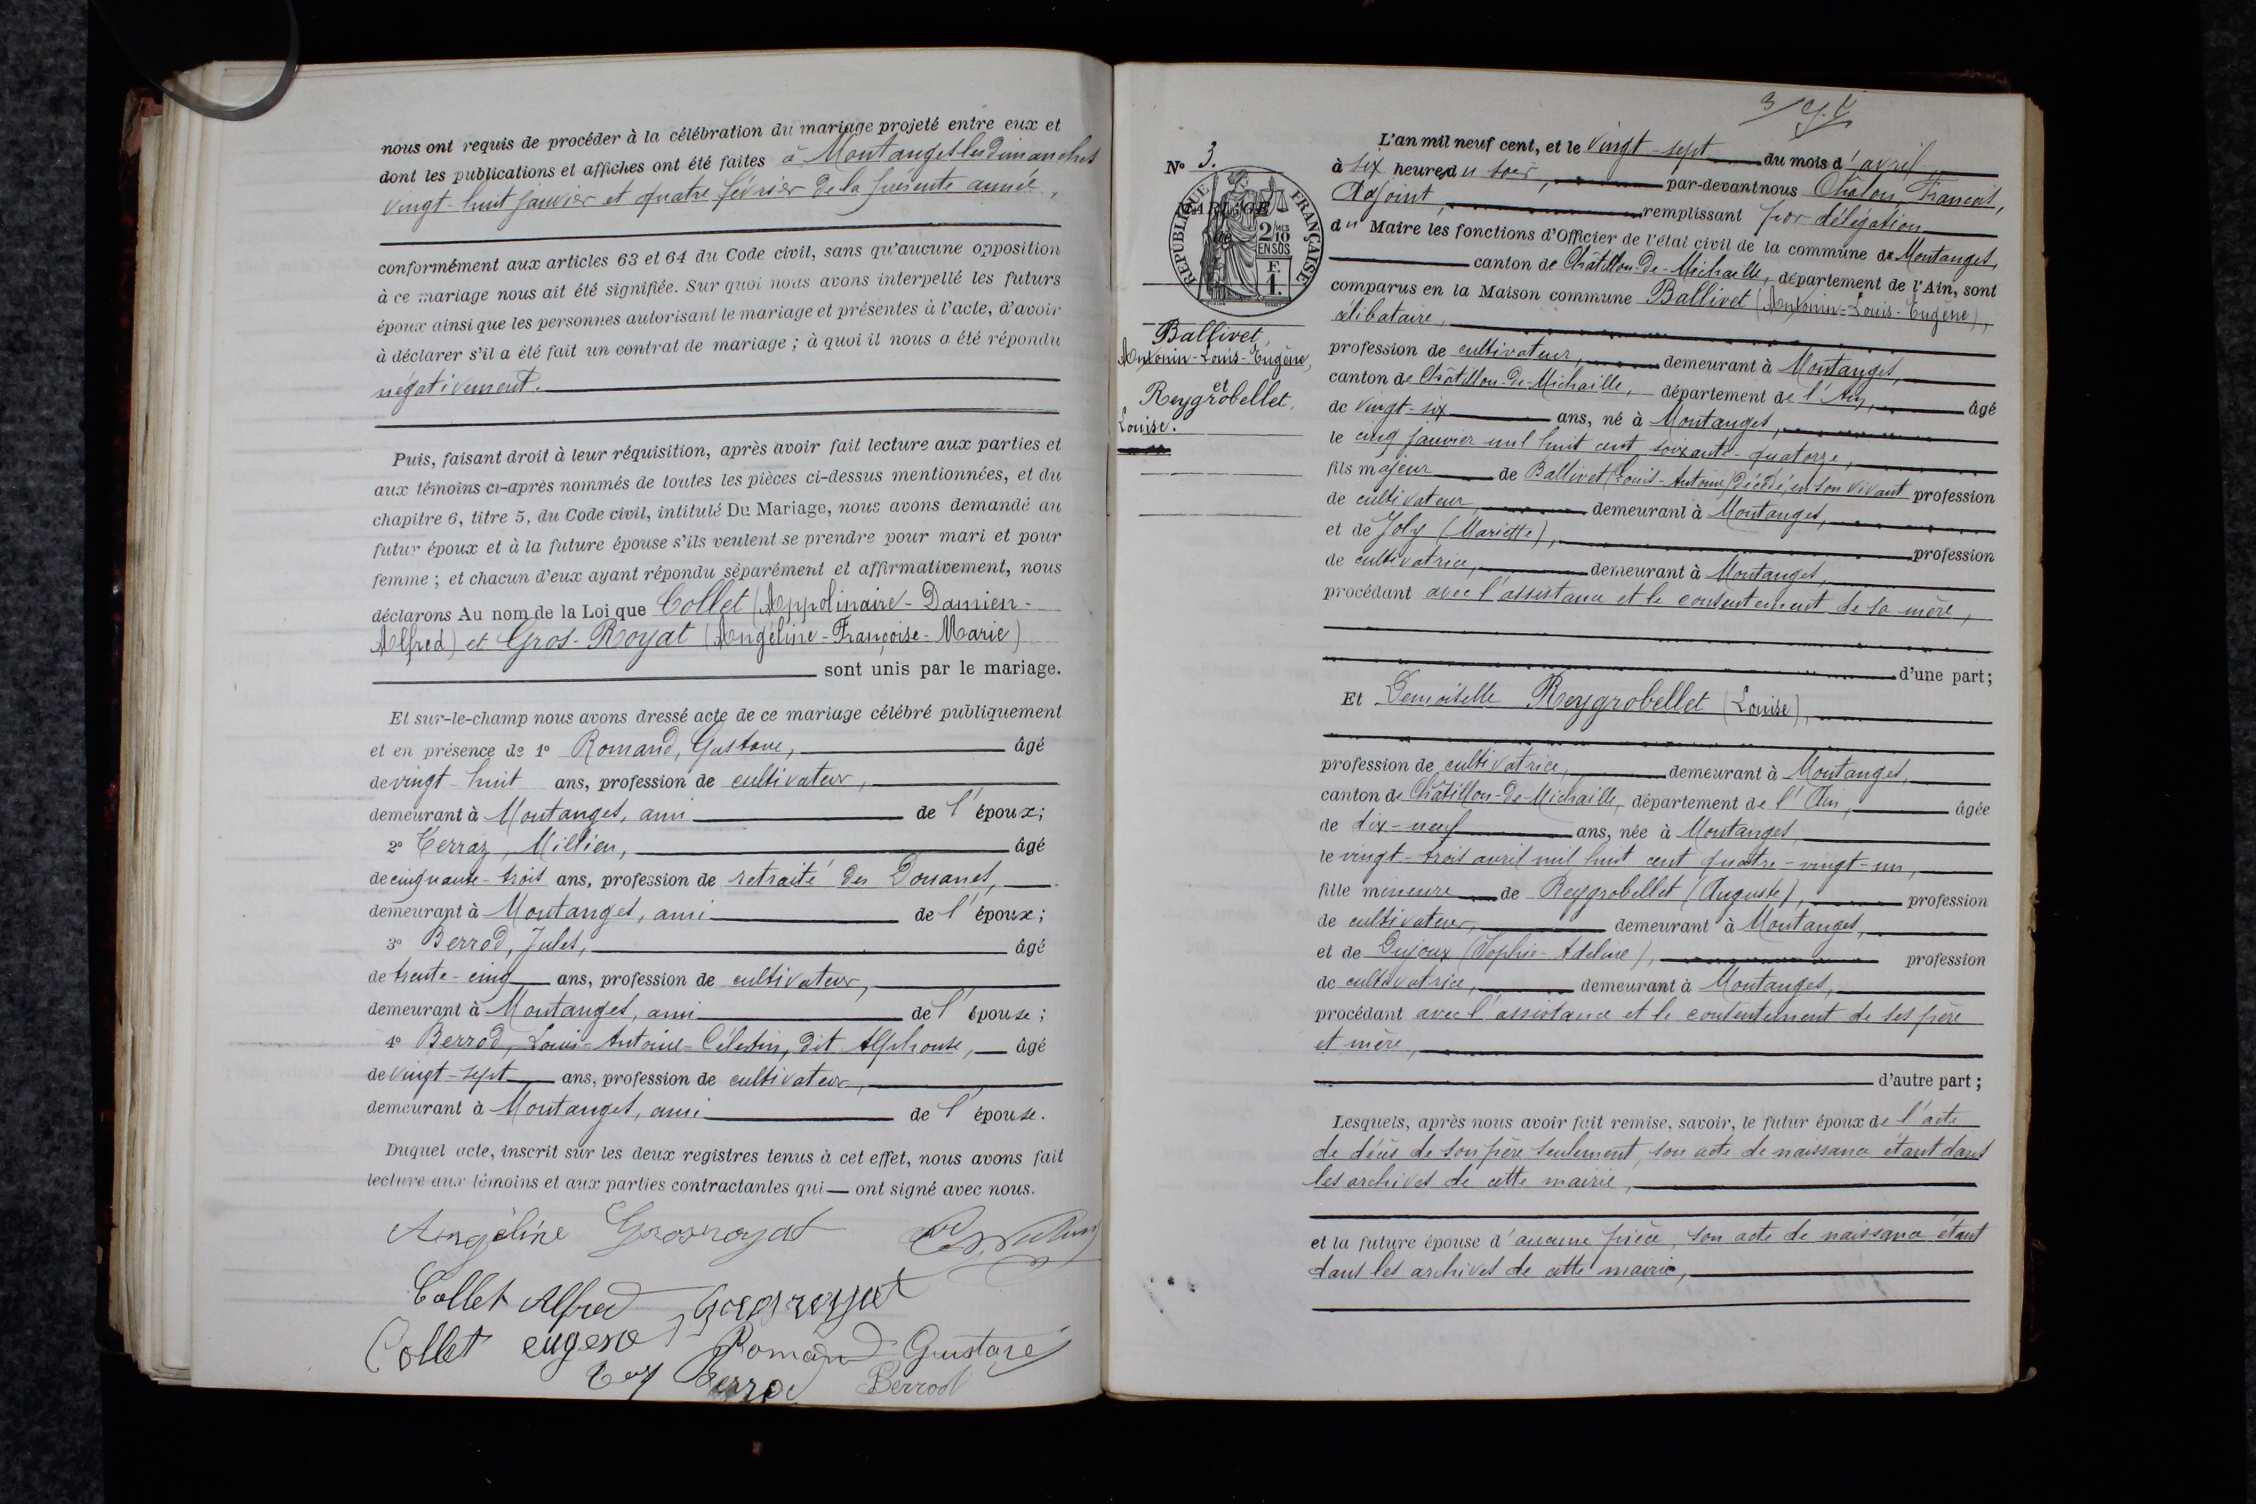 nous ont requis de procéder à la célébration du mariage projeté entre eux et
dont les publications et affiches ont été faites à Montanges les dimanches
vingt-huit janvier et quatre février de la présente année,
conformément aux articles 63 et 64 du Code civil, sans qu'aucune opposition
à ce mariage nous ait été signifiée. Sur quoi nous avons interpellé les futurs
époux ainsi que les personnes autorisant le mariage et présentes à l'acte, d'avoir
à déclarer s'il a été fait un contrat de mariage ; à quoi il nous a été répondu
négativement.
Puis, faisant droit à leur réquisition, après avoir fait lecture aux parties et
aux témoins ci-après nommés de toutes les pièces ci-dessus mentionnées, et du
chapitre 6, titre 5, du Code civil, intitulé Du Mariage, nous avons demandé au
futur époux et à la future épouse s'ils veulent se prendre pour mari et pour
femme ; et chacun d'eux ayant répondu séparément et affirmativement, nous
déclarons Au nom de la Loi que Collet (Appolinaire-Damien-
Alfred) et Gros-Royat (Angéline-Françoise-Marie)
sont unis par le mariage.
Et sur-le-champ nous avons dressé acte de ce mariage célébré publiquement
et en présence de 1° Romand, Gustave, âgé
de vingt-huit ans, profession de cultivateur,
demeurant à Montanges, ami de l'époux;
2° Terraz, Millien, âgé
de cinquante-trois ans, profession de retraité des Douanes,
demeurant à Montanges, ami de l'époux;
3° Berrod, Jules, âgé
de trente-cinq ans, profession de cultivateur,
demeurant à Montanges, ami de l'épouse;
4° Berrod, Louis-Antoine-Célestin, dit Alphonse, âgé
de vingt-sept ans, profession de cultivateur,
demeurant à Montanges, ami de l'épouse.
Duquel acte, inscrit sur les deux registres tenus à cet effet, nous avons fait
lecture aux témoins et aux parties contractantes qui ont signé avec nous.
Angéline Grosroyat
Collet Alfred Grosroyat
Collet eugene Romand Gustave
Berrod Berrod
3
N° 3.
MARIAGE
DE
RÉPUBLIQUE FRANÇAISE
2/10 MES
EN SUS
F.
1.
Ballivet,
Antonin-Louis-Eugène,
et
Reygrobellet,
Louise.
L'an mil neuf cent, et le vingt-sept du mois d'avril,
à six heures du soir, par-devant nous Chalon, François,
Adjoint, remplissant par délégation
du Maire les fonctions d'Officier de l'état civil de la commune de Montanges,
canton de Châtillon-de-Michaille, département de l'Ain, sont
comparus en la Maison commune Ballivet (Antonin-Louis-Eugène),
célibataire,
profession de cultivateur, demeurant à Montanges,
canton de Châtillon-de-Michaille, département de l'Ain, âgé
de vingt-six ans, né à Montanges,
le cinq janvier mil huit cent soixante-quatorze,
fils majeur de Ballivet (Louis-Antoine) décédé, en son vivant profession
de cultivateur, demeurant à Montanges,
et de Joly (Mariette), profession
de cultivatrice, demeurant à Montanges,
procédant avec l'assistance et le consentement de sa mère,
d'une part;
Et Demoiselle Reygrobellet (Louise),
profession de cultivatrice, demeurant à Montanges,
canton de Châtillon-de-Michaille, département de l'Ain, âgée
de dix-neuf ans, née à Montanges,
le vingt-trois avril mil huit cent quatre-vingt-un,
fille mineure de Reygrobellet (Auguste), profession
de cultivateur, demeurant à Montanges,
et de Dujoux (Sophie-Adeline), profession
de cultivatrice, demeurant à Montanges,
procédant avec l'assistance et le consentement de ses père
et mère,
d'autre part;
Lesquels, après nous avoir fait remise, savoir, le futur époux de l'acte
de décès de son père seulement, son acte de naissance étant dans
les archives de cette mairie,
et la future épouse d'aucune pièce, son acte de naissance étant
dans les archives de cette mairie,